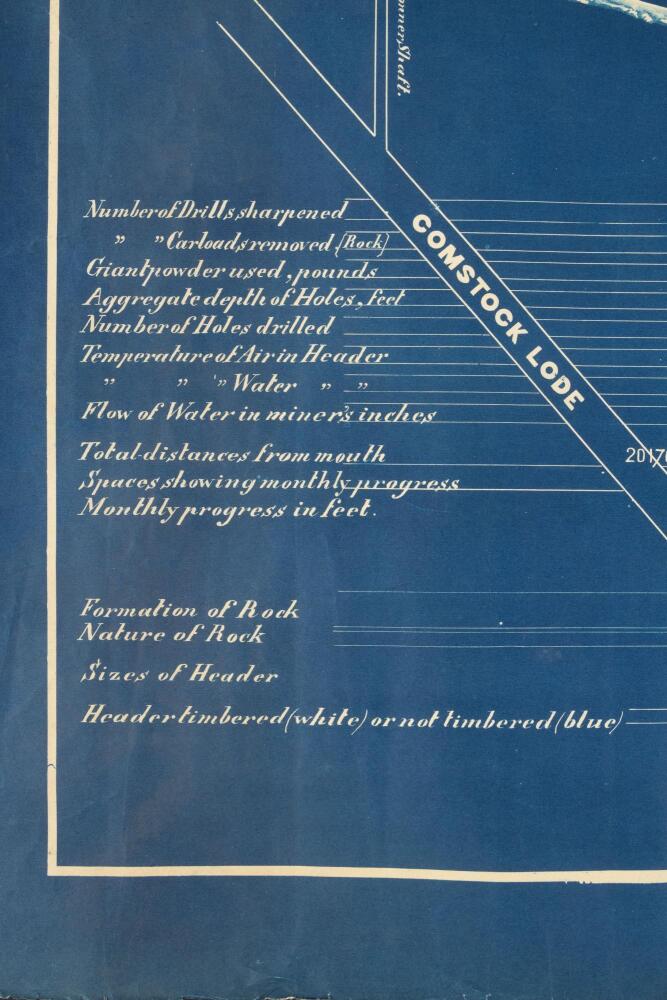 mner Shaft.
Number of Drills sharpened
” ” Carloads removed {Rock}
Giantpowder used, pounds
Aggregate depth of Holes, feet
Number of Holes drilled
Temperature of Air in Header
” ” ” Water ” ”
Flow of Water in miner's inches
COMSTOCK LODE
Total-distances from mouth
2017
Spaces showing monthly progress
Monthly progress in feet.
Formation of Rock
Nature of Rock
Sizes of Header
Header timbered (white) or not timbered (blue)